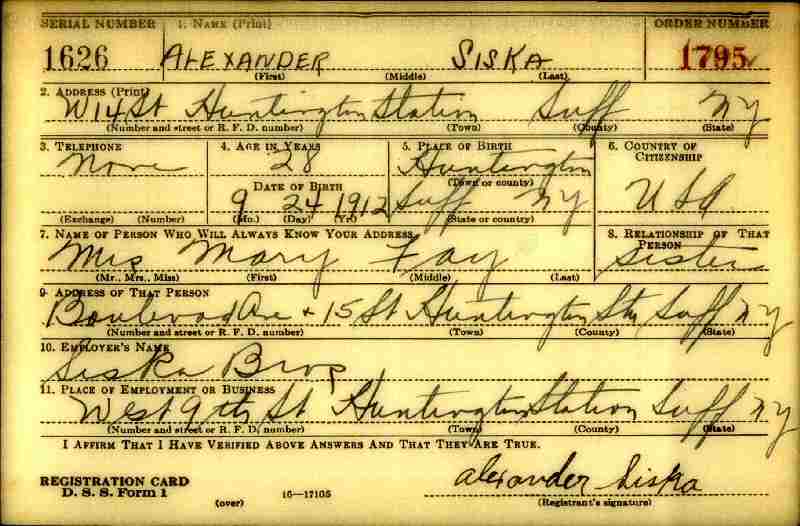 SERIAL NUMBER 1. NAME (Print) ORDER NUMBER
1626 ALEXANDER SISKA 1795
(First) (Middle) (Last)
2. ADDRESS (Print)
W 14 St Huntington Station Suff NY
(Number and street or R. F. D. number) (Town) (County) (State)
3. TELEPHONE 4. AGE IN YEARS 5. PLACE OF BIRTH 6. COUNTRY OF CITIZENSHIP
None 28 Huntington
DATE OF BIRTH (Town or county) USA
9 24 1912 Suff NY
(Exchange) (Number) (Mo.) (Day) (Yr.) (State or country)
7. NAME OF PERSON WHO WILL ALWAYS KNOW YOUR ADDRESS 8. RELATIONSHIP OF THAT PERSON
Mrs Mary Fay Sister
(Mr., Mrs., Miss) (First) (Middle) (Last)
9. ADDRESS OF THAT PERSON
Boulevad Ave + 15 St Huntington Sta Suff NY
(Number and street or R. F. D. number) (Town) (County) (State)
10. EMPLOYER'S NAME
Siska Bros
11. PLACE OF EMPLOYMENT OR BUSINESS
West 9th St Huntington Station Suff NY
(Number and street or R. F. D. number) (Town) (County) (State)
I AFFIRM THAT I HAVE VERIFIED ABOVE ANSWERS AND THAT THEY ARE TRUE.
REGISTRATION CARD Alexander Siska
D. S. S. Form 1 (over) 16-17105 (Registrant's signature)